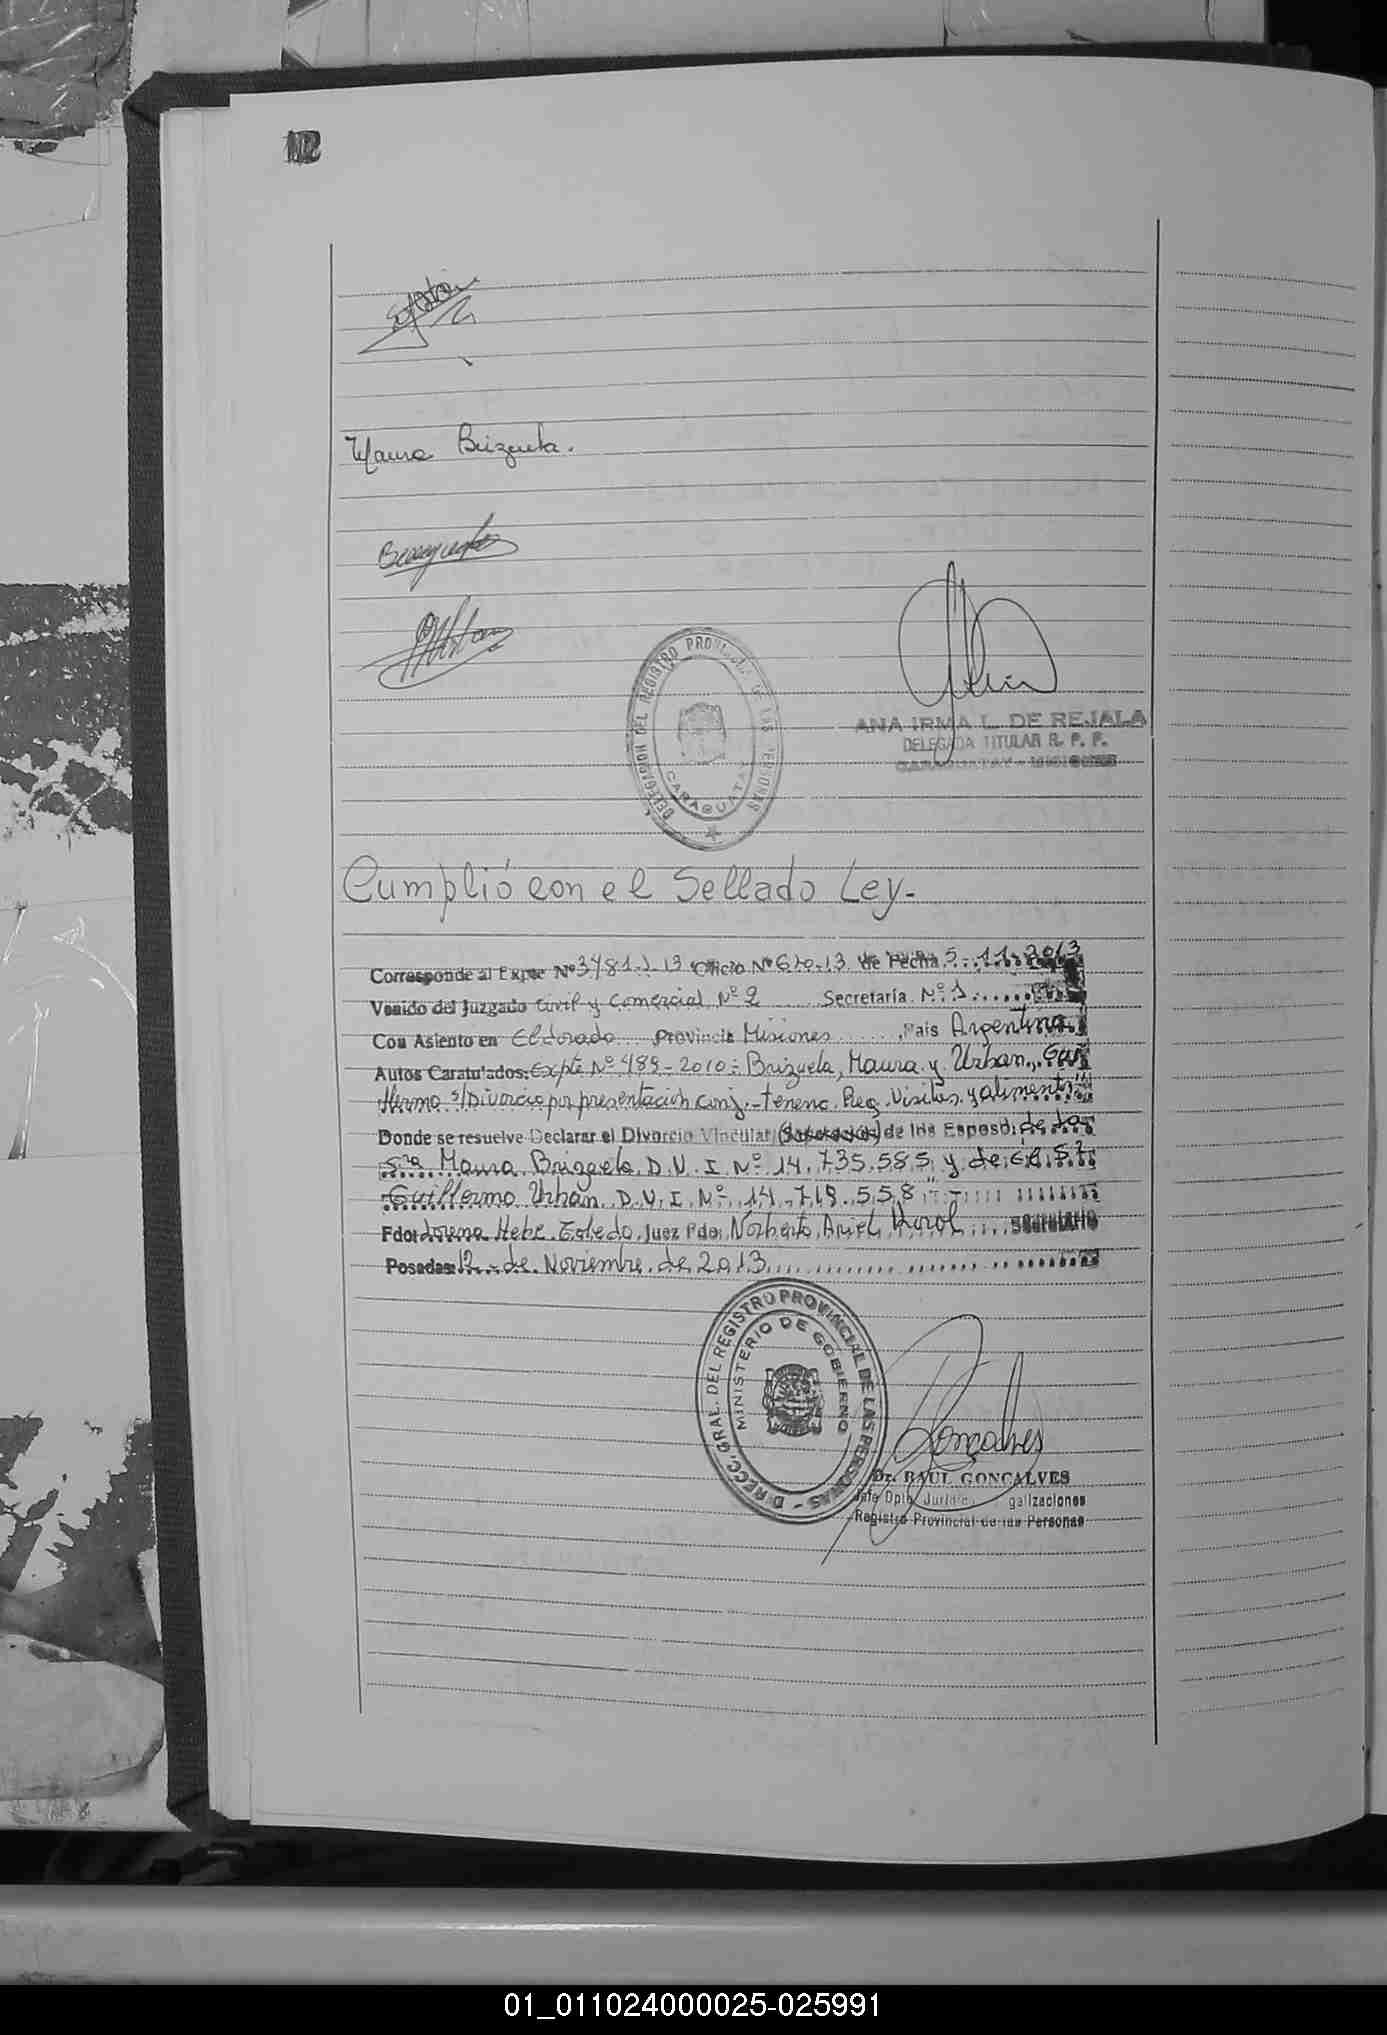 Maura Brizuela.
DELEGACION DEL REGISTRO PROVINCIAL DE LAS PERSONAS
CARAGUATAY
ANA IRMA L. DE REJALA
DELEGADA TITULAR R. P. P.
CARAGUATAY - MISIONES
Cumplió con el Sellado Ley.-
Corresponde al Expte Nº 3481-J-13 Oficio Nº 620-13 de Fecha 5-11-2013
Venido del Juzgado Civil y Comercial Nº 2 Secretaría Nº 1
Con Asiento en Eldorado Provincia Misiones, País Argentina.
Autos Caratulados: Expte Nº 489-2010- Brizuela, Maura y Urban, Gui
llermo s/Divorcio por presentación conj.-tenenc. Reg. Visitas y aliment
Donde se resuelve Declarar el Divorcio Vincular de los Esposo: de la
Sra Maura Brizuela D.N.I. Nº 14.735.585 y de el Sr.
Guillermo Urban D.N.I. Nº 14.719.558
Fdo: Lorena Hebe Toledo, Juez Fdo: Norberto Ariel Korol Secretario
Posadas: 12 de Noviembre de 2013
DIRECC. GRAL. DEL REGISTRO PROVINCIAL DE LAS PERSONAS -
MINISTERIO DE GOBIERNO
Gonçalves
Dr. RAUL GONCALVES
Jefe Dpto Jurídic galizaciones
Registro Provincial de las Personas
01_011024000025-025991